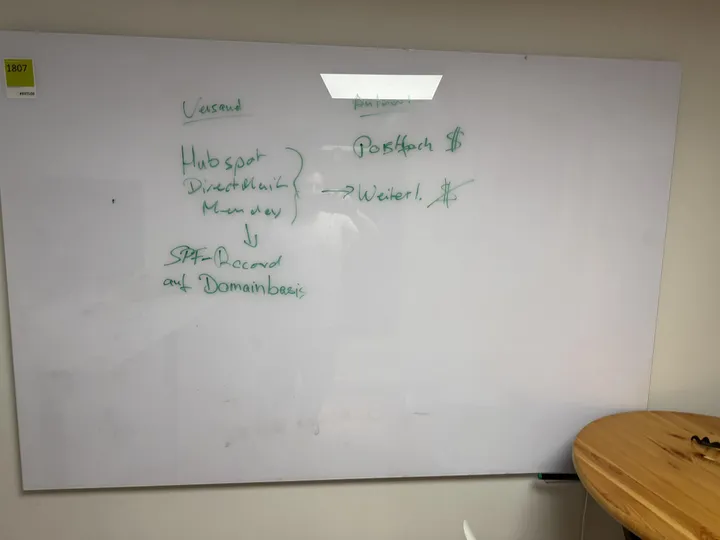 1807
Versand
Hubspot
DirectMail
SPF-Record
auf Domainbasis
Postfach $
→ Weiterl. $